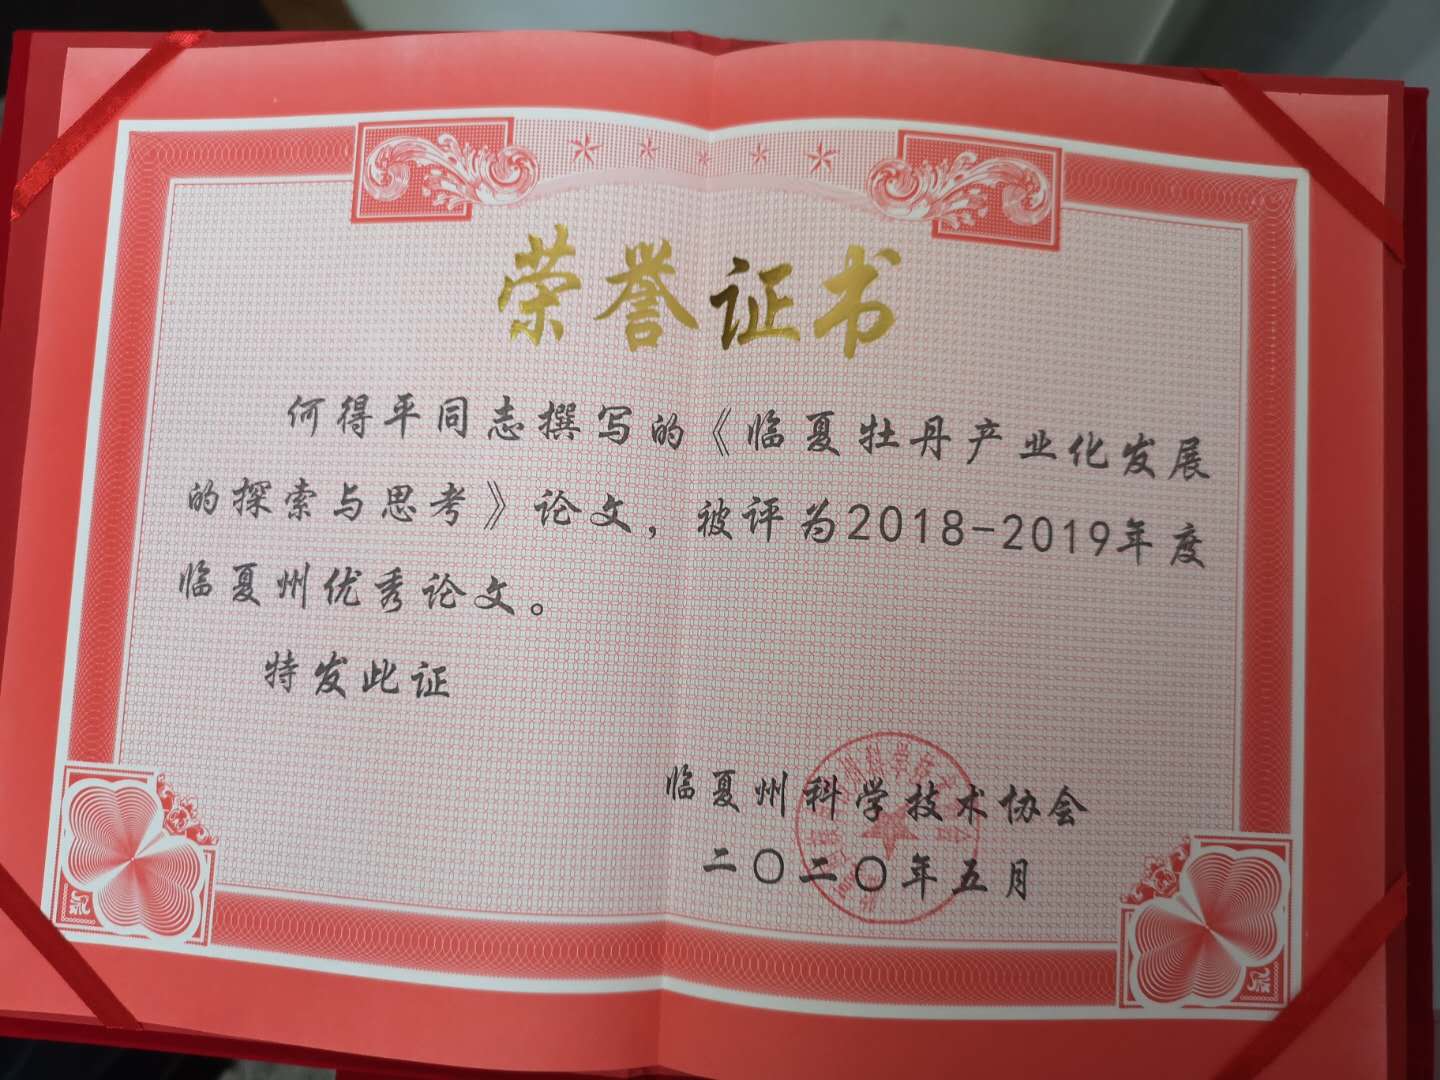 荣誉证书
何得平同志撰写的《临夏牡丹产业化发展
的探索与思考》论文，被评为2018-2019年度
临夏州优秀论文。
特发此证
临夏州科学技术协会
二〇二〇年五月
州科学技术